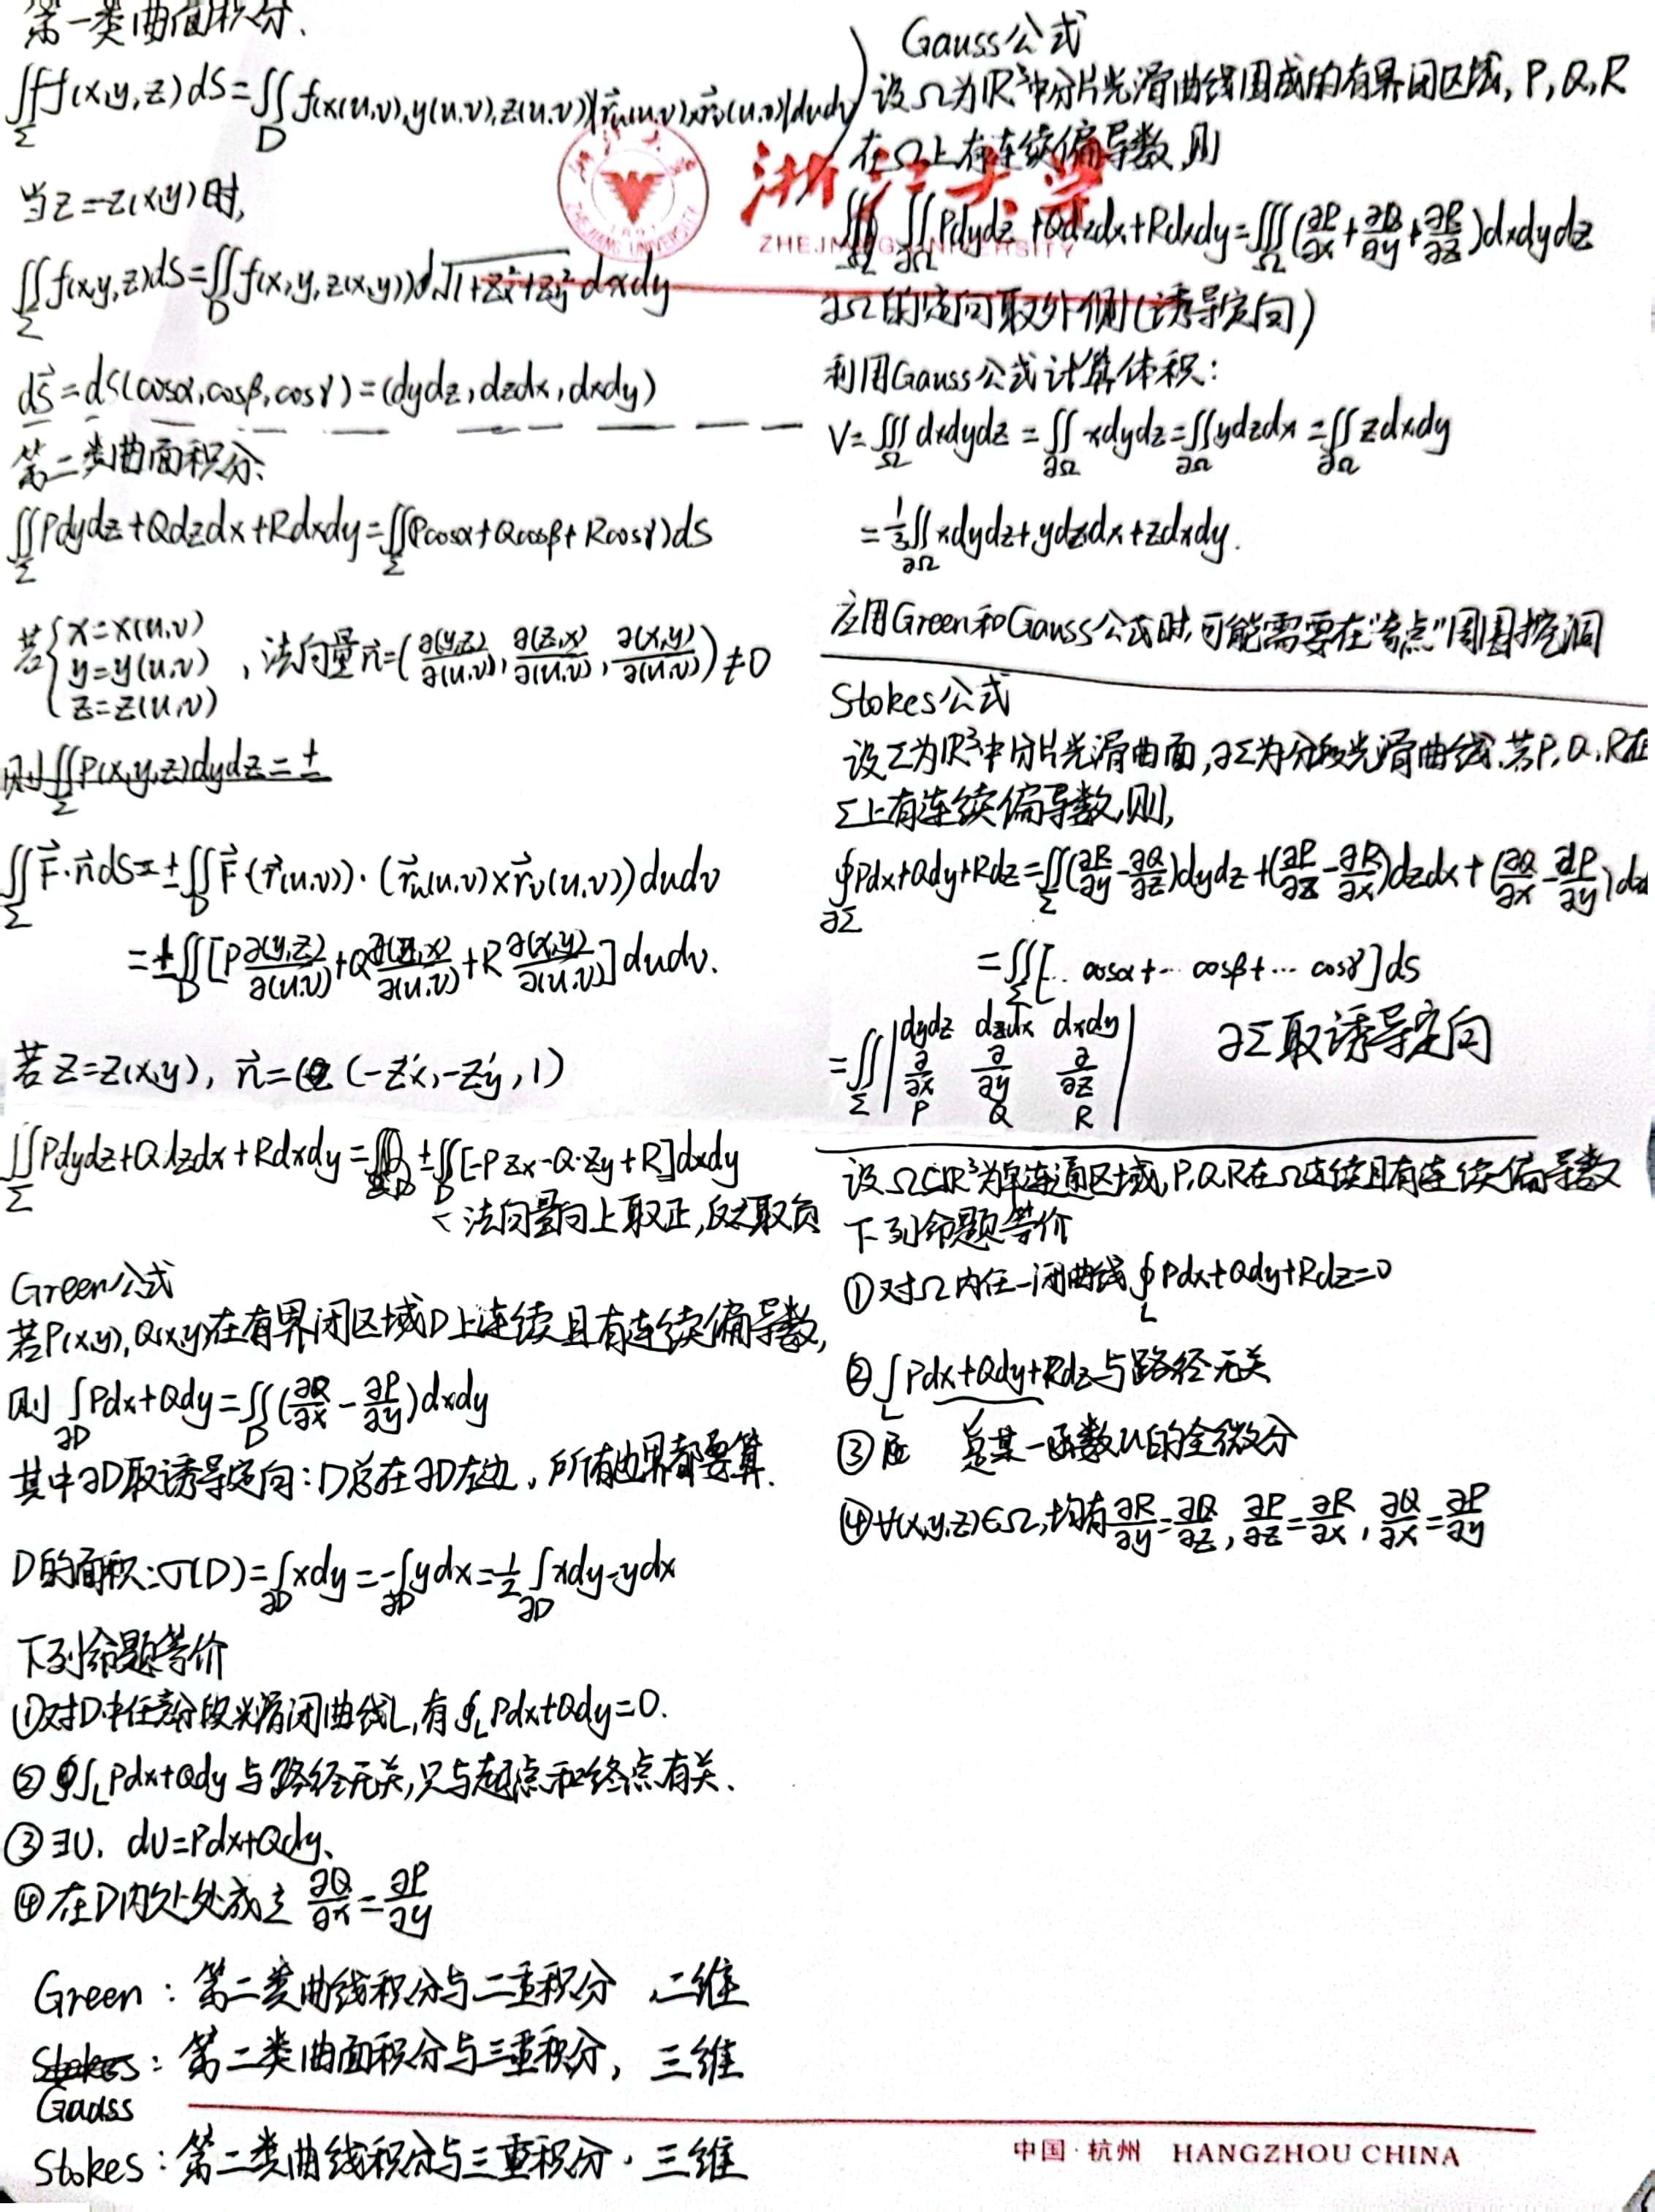 第一类曲面积分.
∬_Σ f(x,y,z)dS=∬_D f(x(u,v),y(u,v),z(u,v))|r⃗u(u,v)×r⃗v(u,v)|dudv
当z=z(x,y)时,
∬_Σ f(x,y,z)dS=∬_D f(x,y,z(x,y))√(1+z²x+z²y) dxdy
dS⃗=dS(cosα,cosβ,cosγ)=(dydz,dzdx,dxdy)
第二类曲面积分:
∬_Σ Pdydz+Qdzdx+Rdxdy=∬_Σ(Pcosα+Qcosβ+Rcosγ)dS
若{x=x(u,v)
y=y(u,v) , 法向量n⃗=(∂(y,z)/∂(u,v), ∂(z,x)/∂(u,v), ∂(x,y)/∂(u,v))≠0
z=z(u,v)
则∬_Σ P(x,y,z)dydz=±
∬_Σ F⃗·n⃗dS=±∬_D F⃗(r⃗(u,v))·(r⃗u(u,v)×r⃗v(u,v))dudv
=±∬_D[P∂(y,z)/∂(u,v)+Q∂(z,x)/∂(u,v)+R∂(x,y)/∂(u,v)]dudv.
若z=z(x,y), n⃗=(-z'x,-z'y,1)
∬_Σ Pdydz+Qdzdx+Rdxdy=±∬_D[-Pzx-Q·zy+R]dxdy
法向量向上取正,反之取负
Green公式
若P(x,y),Q(x,y)在有界闭区域D上连续且有连续偏导数,
则∫_∂D Pdx+Qdy=∬_D(∂Q/∂x-∂P/∂y)dxdy
其中∂D取诱导定向:D总在∂D左边,所有边界都要算.
D的面积:σ(D)=∫_∂D xdy=-∫_∂D ydx=1/2∫_∂D xdy-ydx
下列命题等价
①对D中任意分段光滑闭曲线L,有∮_L Pdx+Qdy=0.
②∫_L Pdx+Qdy与路径无关,只与起点和终点有关.
③∃U, dU=Pdx+Qdy.
④在D内处处成立 ∂Q/∂x=∂P/∂y
Green:第二类曲线积分与二重积分,二维
Stokes:第二类曲面积分与三重积分,三维
Gauss
Stokes:第二类曲线积分与三重积分.三维
Gauss公式
设Ω为R³中分片光滑曲线围成的有界闭区域,P,Q,R
在Ω上有连续偏导数,则
浙江大学
ZHEJIANG UNIVERSITY
∬_∂Ω Pdydz+Qdzdx+Rdxdy=∭_Ω(∂P/∂x+∂Q/∂y+∂R/∂z)dxdydz
∂Ω的定向取外侧(诱导定向)
利用Gauss公式计算体积:
V=∭_Ω dxdydz=∬_∂Ω xdydz=∬_∂Ω ydzdx=∬_∂Ω zdxdy
=1/3∬_∂Ω xdydz+ydzdx+zdxdy.
应用Green和Gauss公式时,可能需要在"奇点"周围挖洞
Stokes公式
设Σ为R³中分片光滑曲面,∂Σ为分段光滑曲线.若P,Q,R在
Σ上有连续偏导数,则,
∮_∂Σ Pdx+Qdy+Rdz=∬_Σ(∂R/∂y-∂Q/∂z)dydz+(∂P/∂z-∂R/∂x)dzdx+(∂Q/∂x-∂P/∂y)dx
=∬_Σ[… cosα+… cosβ+… cosγ]dS
=∬_Σ|dydz dzdx dxdy|
|∂/∂x ∂/∂y ∂/∂z| ∂Σ取诱导定向
|P Q R|
设Ω⊂R³为单连通区域,P,Q,R在Ω连续且有连续偏导数
下列命题等价
①对Ω内任一闭曲线∮_L Pdx+Qdy+Rdz=0
②∫_L Pdx+Qdy+Rdz与路径无关
③ 是某一函数u的全微分
④∀(x,y,z)∈Ω,均有∂R/∂y=∂Q/∂z, ∂P/∂z=∂R/∂x, ∂Q/∂x=∂P/∂y
中国·杭州 HANGZHOU CHINA